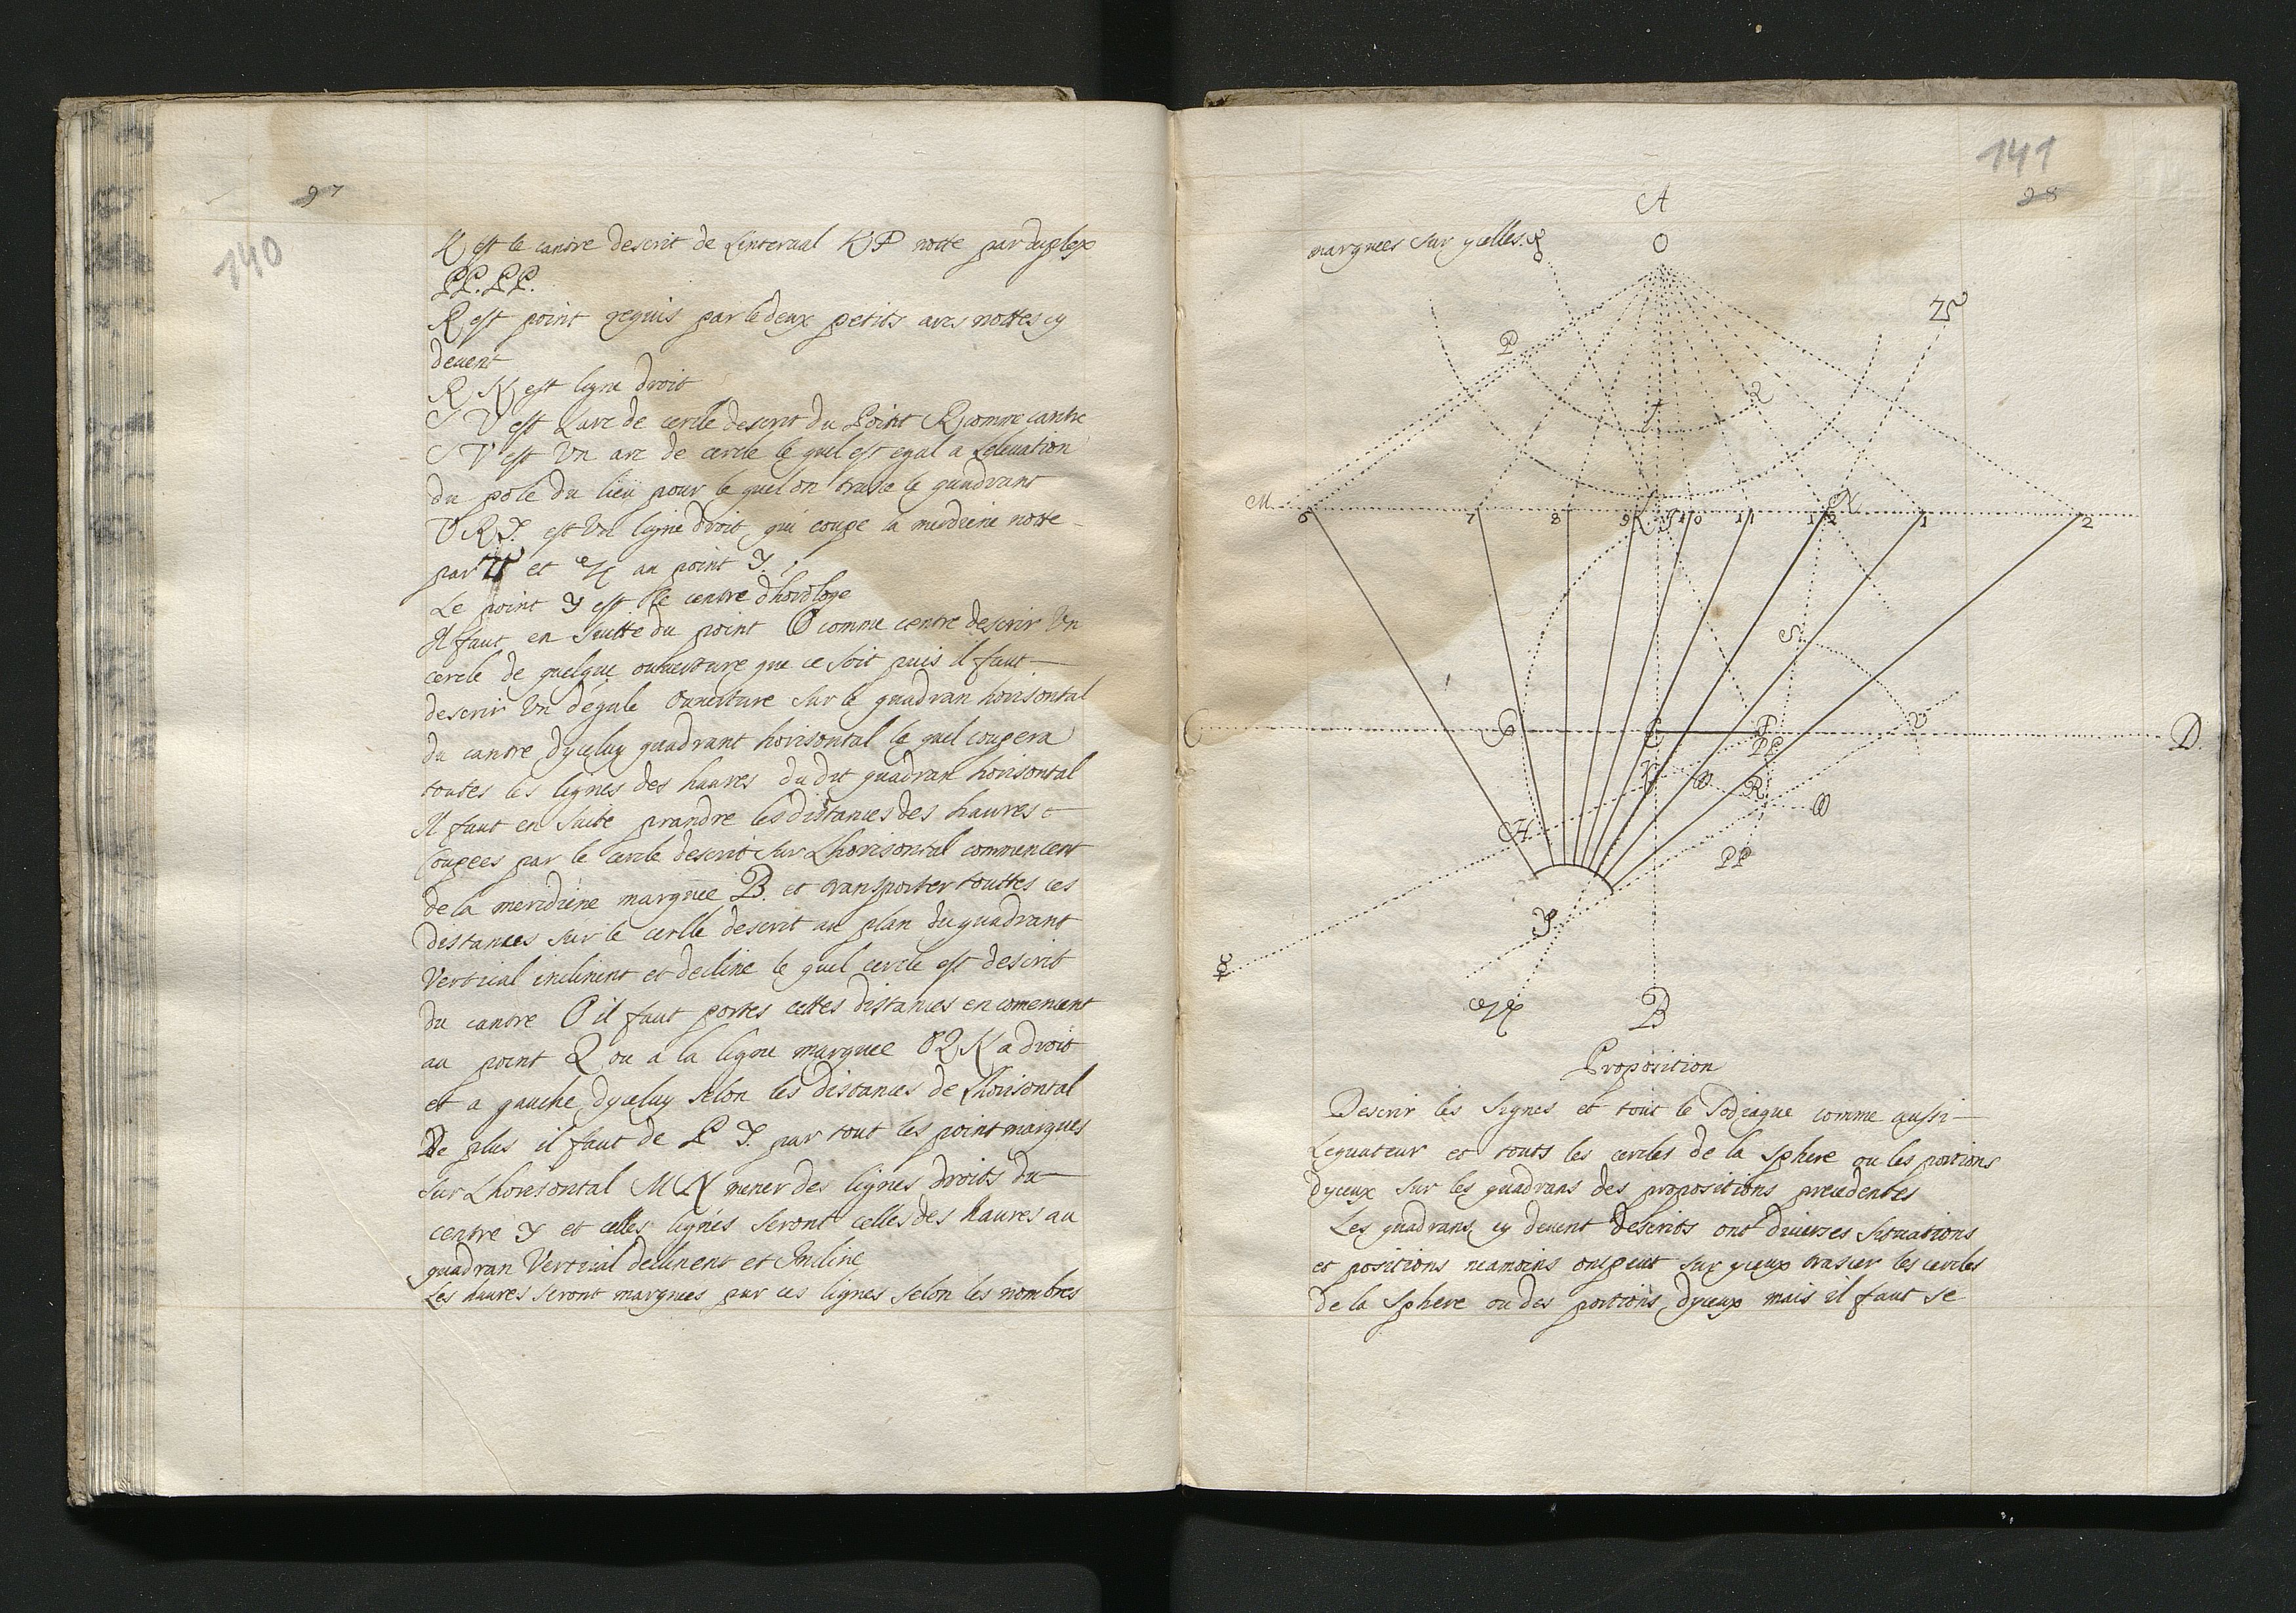 97
140
K est le cantre descrit de Linterual KP notte par duplex
PP. PP.
R est point requis par le deux petits arcs nottes cy
deuent
R N est ligne droit
S V est Larc de cercle descrit du Point R comme cantre
S V est Un arc de cercle le quel est egal a Leleuation
du pole du lieu pour le quel on trace le quadrant
V R Y. est Un ligne droit qui coupe la meridiene notte
par ♑ et au point Y.
Le point Y est le centre dhorologe
Il faut en Suitte du point O comme centre descrir Un
cercle de quelque ouuerture que ce soit puis il faut
descrir Un dégale Ouuerture sur le quadran horisontal
du cantre dyceluy quadrant horisontal le quel coupera
toutes les lignes des haures du dit quadran horisontal
Il faut en Suite prandre les distances des haures
Coupees par le cercle descrit sur Lhorisontal commencent
de la meridiene marquée B. et transporter touttes ces
distances sur le cerlle descrit au plan du quadrant
Vertical inclinent et decline le quel cercle est descrit
du cantre O il faut portes cettes distances en comencent
au point Q ou a la ligne marquee O Q N a droit
et a gauche dyceluy selon les distances de Lhorisontal
De plus il faut de P Y. par tout les point marques
sur Lhorisontal M N mener des lignes droits du
centre Y et celles lignes seront celles des haures au
quadran Vertical declinent et Incline
Les haures seront marquees par ces lignes selon les nombres
141
98
marquees sur ycelles.
A
O
♑
P
Q
M
N
6 7 8 9 10 11 12 1 2
S
C
G
E
P
V
D.
PP
R
H
PP
Y
☿
B
Proposition
Descrir les signes et tout le Zodiaque comme aussi
Lequateur et touts les cercles de la sphere ou les portions
dyceux sur les quadrans des propositions precedentes
Les quadrans cy deuent descrits ont diuerses situations
et positions neamoins on peut sur yceux traser les cercles
de la sphere ou des portions dyceux mais il faut se